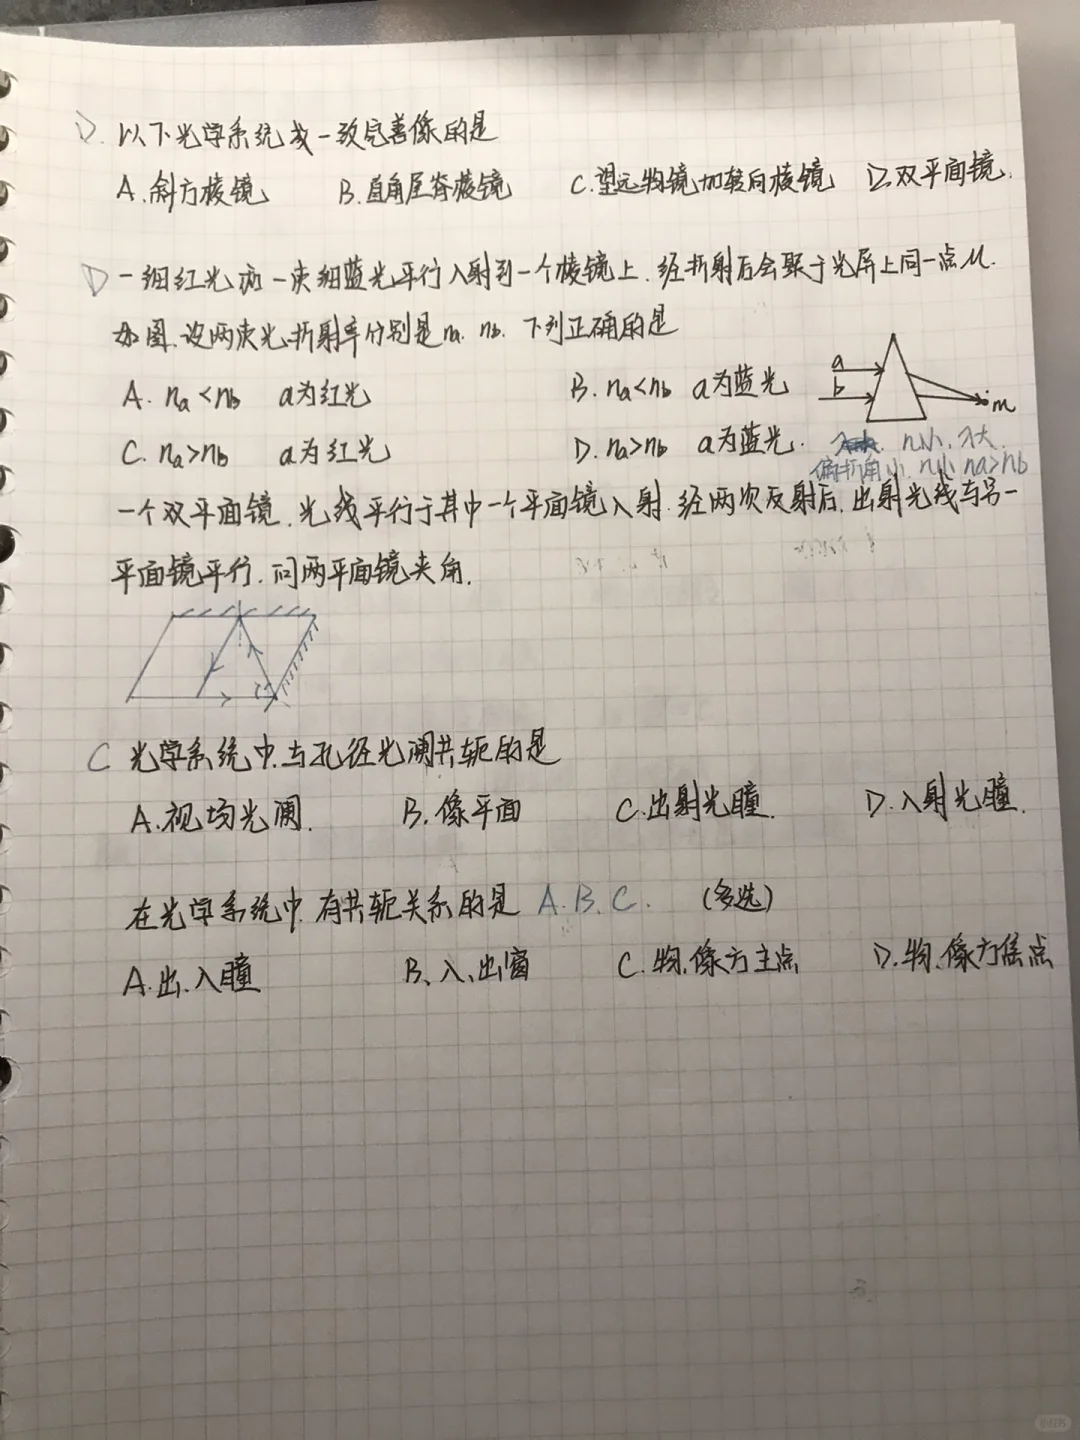 D. 以下光学系统成一致完善像的是
A.斜方棱镜 B.直角屋脊棱镜 C.望远物镜加转向棱镜 D.双平面镜.
D 一细红光和一束细蓝光平行入射到一个棱镜上.经折射后会聚于光屏上同一点M.
如图.设两束光折射率分别是na. nb. 下列正确的是
A. na<nb a为红光 B. na<nb a为蓝光
C. na>nb a为红光 D. na>nb a为蓝光.
a
b
m
n小.λ大.
偏折角小.n小 na>nb
一个双平面镜.光线平行于其中一个平面镜入射.经两次反射后.出射光线与另一
平面镜平行.问两平面镜夹角.
C 光学系统中.与孔径光阑共轭的是
A.视场光阑. B.像平面 C.出射光瞳. D.入射光瞳.
在光学系统中.有共轭关系的是 A.B.C. (多选)
A.出.入瞳 B、入、出窗 C.物.像方主点 D.物、像方焦点
小红书